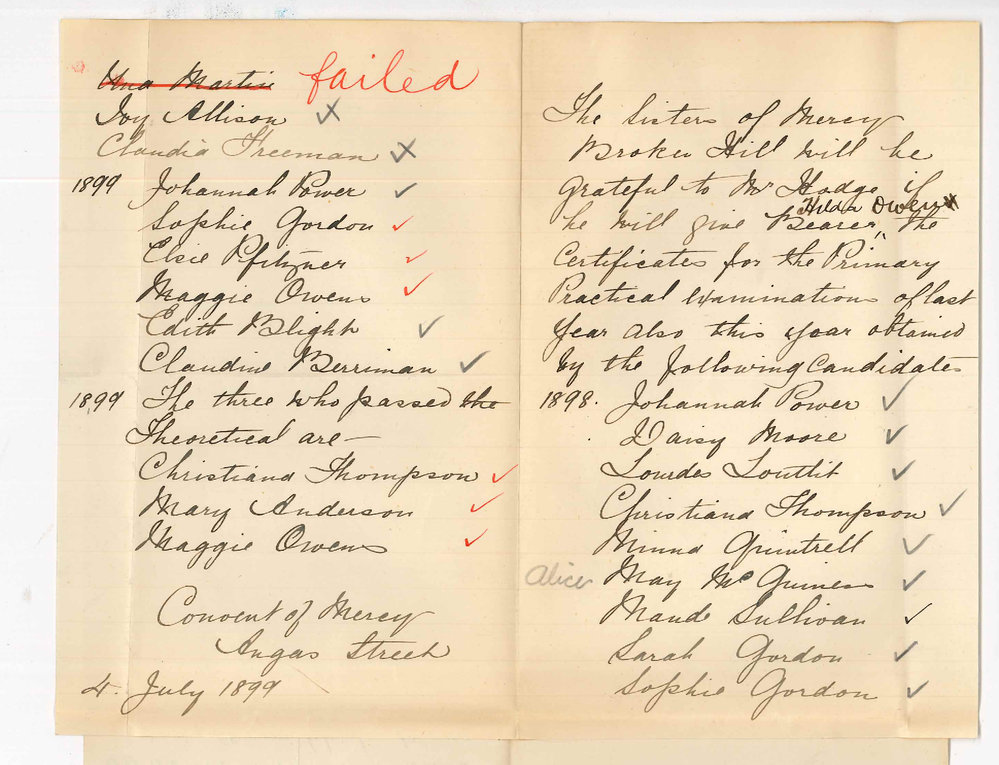 The Sisters of Mercy
Broken Hill will be
grateful to Mr Hodge if
he will give Bearer, Hilda Owens the
Certificates for the Primary
Practical examinations of last
year also this year obtained
by the following Candidates
1898. Johannah Power ✓
Daisy Moore ✓
Lourdes Louttit ✓
Christiana Thompson ✓
Minna Quintrell ✓
Alice May McGuiness ✓
Maude Sullivan ✓
Sarah Gordon ✓
Sophie Gordon ✓
Una Martin failed
Ivy Allison X
Claudia Freeman X
1899 Johannah Power ✓
Sophie Gordon ✓
Elsie Pfitzner ✓
Maggie Owens ✓
Edith Blight ✓
Claudine Berriman ✓
1899 The three who passed the
Theoretical are —
Christiana Thompson ✓
Mary Anderson ✓
Maggie Owens ✓
Convent of Mercy
Angas Street
4. July 1899